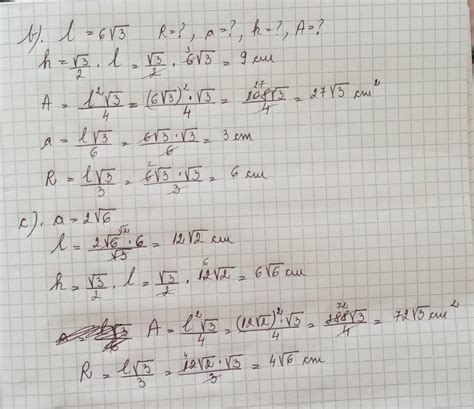 b). l = 6√3 R=?, a=?, h=?, A=?
h = √3/2 · l = √3/2 · 6√3 = 9 cm
A = l²√3/4 = (6√3)²·√3/4 = 108√3/4 = 27√3 cm²
a = l√3/6 = 6√3·√3/6 = 3 cm
R = l√3/3 = 6√3·√3/3 = 6 cm
c). a = 2√6
l = 2√6·6/√3 = 12√2 cm
h = √3/2 · l = √3/2 · 12√2 = 6√6 cm
A = l²√3/4 = (12√2)²·√3/4 = 288√3/4 = 72√3 cm²
R = l√3/3 = 12√2·√3/3 = 4√6 cm